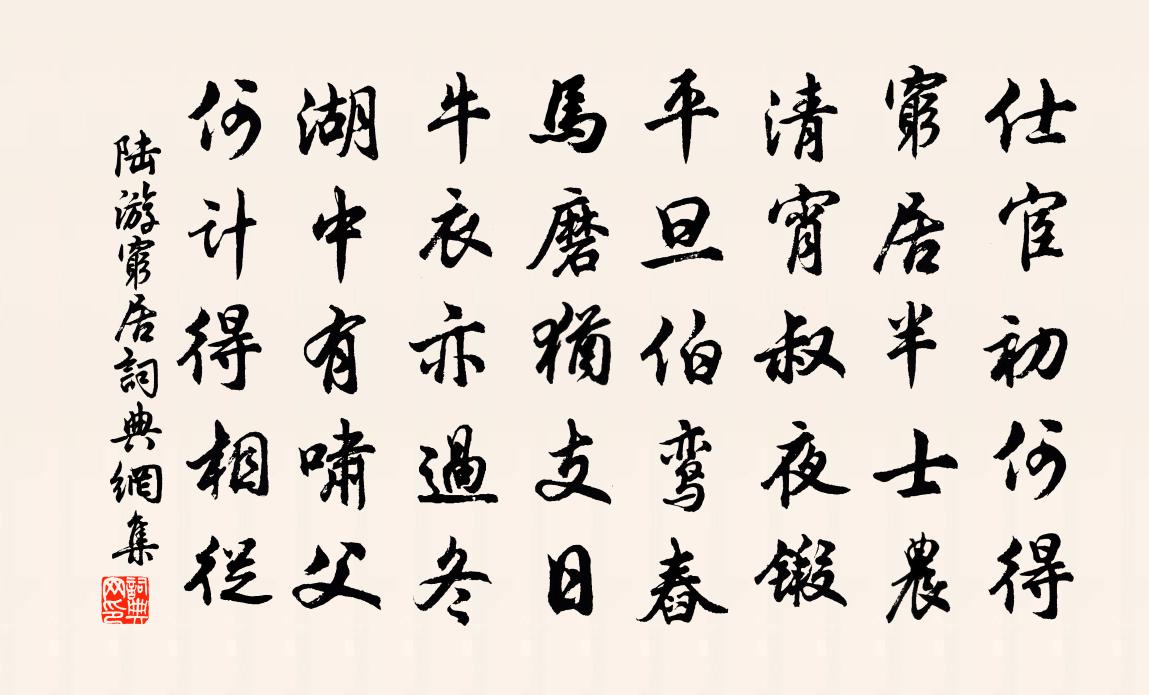 仕宦初何得
窮居半士農
清宵叔夜鍛
平旦伯鸾舂
馬磨猶支日
牛衣亦過冬
湖中有嘯父
何计得相從
陆游窮居詞典網集
詞典网印